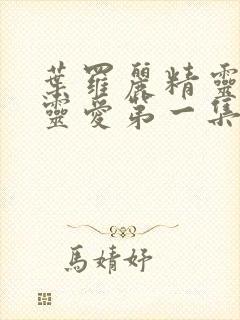 葉羅麗精靈
靈愛第一集
馬婧妤